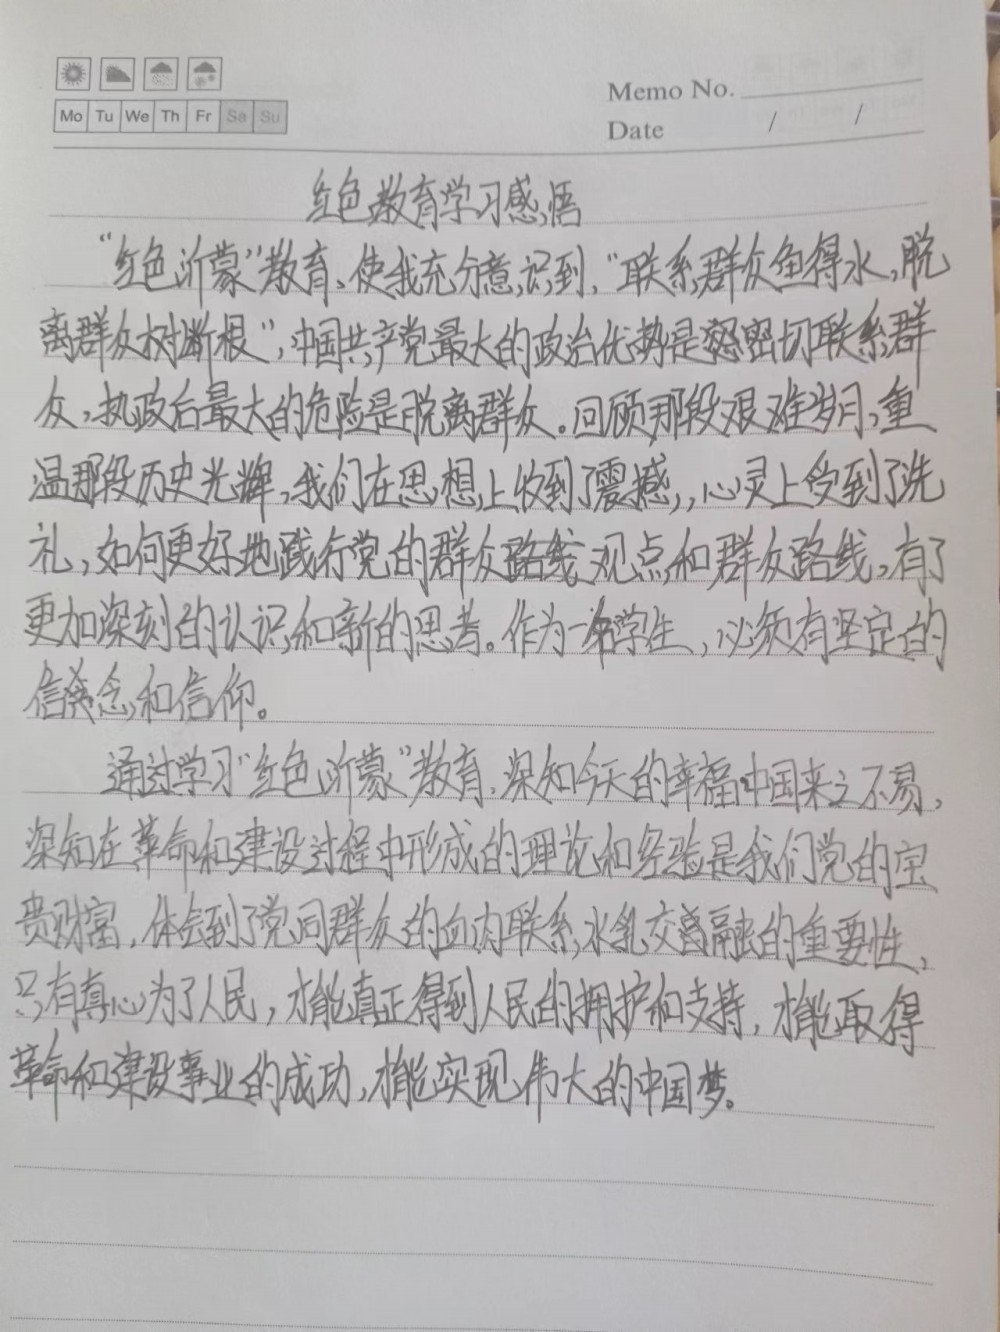 Mo Tu We Th Fr Sa Su
Memo No.
Date / /
红色教育学习感悟
“红色沂蒙”教育、使我充分意识到，“联系群众鱼得水，脱
离群众树断根”，中国共产党最大的政治优势是密切联系群
众，执政后最大的危险是脱离群众。回顾那段艰难岁月，重
温那段历史光辉，我们在思想上收到了震撼，，心灵上受到了洗
礼，如何更好地践行党的群众观点和群众路线，有了
更加深刻的认识和新的思考。作为一名学生，必须有坚定的
信念和信仰。
通过学习“红色沂蒙”教育，深知今天的幸福中国来之不易，
深知在革命和建设过程中形成的理论和经验是我们党的宝
贵财富，体会到了党同群众的血肉联系，水乳交融的重要性，
只有真心为了人民，才能真正得到人民的拥护和支持，才能取得
革命和建设事业的成功，才能实现伟大的中国梦。